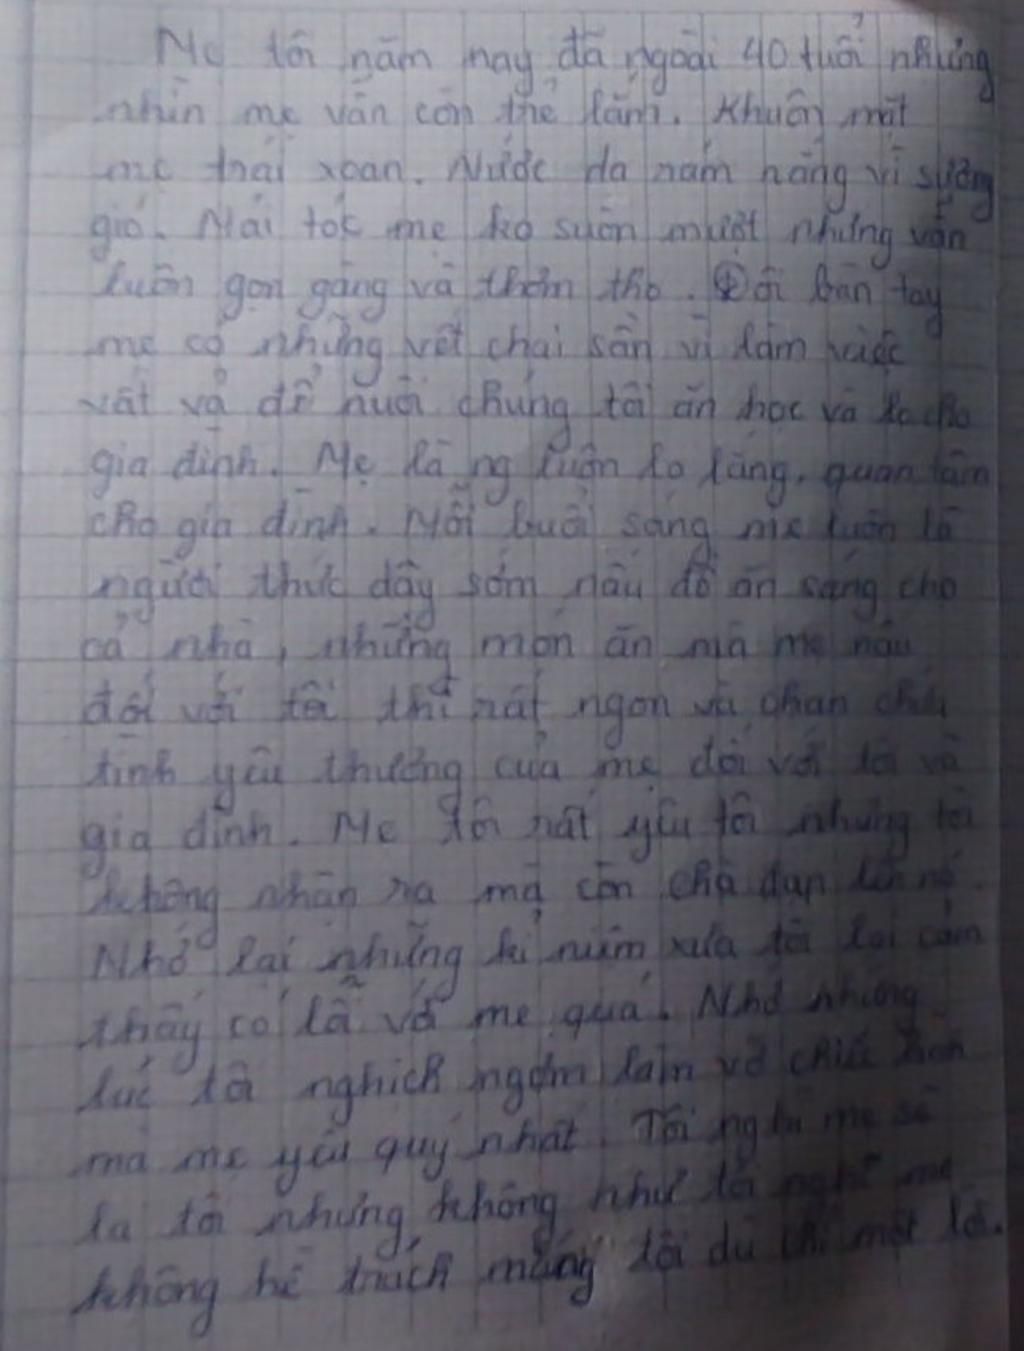 Mẹ tôi năm nay đã ngoài 40 tuổi nhưng
nhìn mẹ vẫn còn trẻ lắm. Khuôn mặt
mẹ trái xoan. Nước da rám nắng vì sương
gió. Mái tóc mẹ ko suôn mượt nhưng vẫn
luôn gọn gàng và thơm tho. Đôi bàn tay
mẹ có những vết chai sần vì làm việc
vất vả để nuôi chúng tôi ăn học và lo cho
gia đình. Mẹ là ng luôn lo lắng, quan tâm
cho gia đình. Mỗi buổi sáng mẹ luôn là
người thức dậy sớm nấu đồ ăn sáng cho
cả nhà, những món ăn mà mẹ nấu
đối với tôi thì rất ngon và chan chứa
tình yêu thương của mẹ đối với tôi và
gia đình. Mẹ tôi rất yêu tôi nhưng tôi
không nhận ra mà còn chà đạp lên nó.
Nhớ lại những kỉ niệm xưa tôi lại cảm
thấy có lỗi với mẹ quá. Nhớ những
lúc tôi nghịch ngợm làm vỡ chiếc
mà mẹ yêu quý nhất. Tôi nghĩ mẹ sẽ
la tôi nhưng không như tôi nghĩ mẹ
không hề trách mắng tôi dù chỉ một lời.